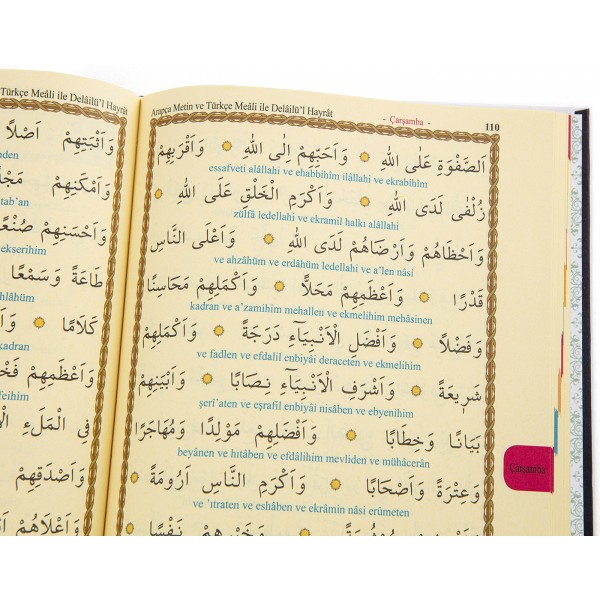 Türkçe Meâli ile Delâilü'l Hayrât
وَاَثْبَتِهِمْ اَصْلًا
nden
وَاَمْكَنِهِمْ
tab'an
وَاَحْسَنِهِمْ صُنْعًا
ekserihim
طَاعَةً وَسَمْعًا
hlâhüm
كَلَامًا
kadran
وَاَعْظَمِهِمْ
feihim
فِي الْمَلَءِ
وَاَصْدَقِهِمْ
وَاَعْلَاهُمْ
Arapça Metin ve Türkçe Meâli ile Delâilü'l Hayrât
- Çarşamba -
110
اَلصَّفْوَةِ عَلَى اللهِ وَاَحَبِّهِمْ اِلَى اللهِ وَاَقْرَبِهِمْ
essafveti alâllahi ve ehabbihim ilâllahi ve ekrabihim
زُلْفٰى لَدَى اللهِ وَاَكْرَمِ الْخَلْقِ عَلَى اللهِ
zülfâ ledellahi ve ekramil halkı alâllahi
وَاَحْظَاهُمْ وَاَرْضَاهُمْ لَدَى اللهِ وَاَعْلَى النَّاسِ
ve ahzâhüm ve erdâhüm ledellahi ve a'len nâsi
قَدْرًا وَاَعْظَمِهِمْ مَحَلًّا وَاَكْمَلِهِمْ مَحَاسِنًا
kadran ve a'zamihim mehallen ve ekmelihim mehâsinen
وَفَضْلًا وَاَفْضَلِ الْاَنْبِيَاءِ دَرَجَةً وَاَكْمَلِهِمْ
ve fadlen ve efdalil enbiyâi deraceten ve ekmelihim
شَرِيعَةً وَاَشْرَفِ الْاَنْبِيَاءِ نِصَابًا وَاَبْيَنِهِمْ
şerî'aten ve eşrafil enbiyâi nisâben ve ebyenihim
بَيَانًا وَخِطَابًا وَاَفْضَلِهِمْ مَوْلِدًا وَمُهَاجَرًا
beyânen ve hıtâben ve efdâlihim mevliden ve mühâcerân
وَعِتْرَةً وَاَصْحَابًا وَاَكْرَمِ النَّاسِ اَرُومَةً
ve 'ıtraten ve eshâben ve ekrâmin nâsi erûmeten
نَفْسًا
Çarşamba